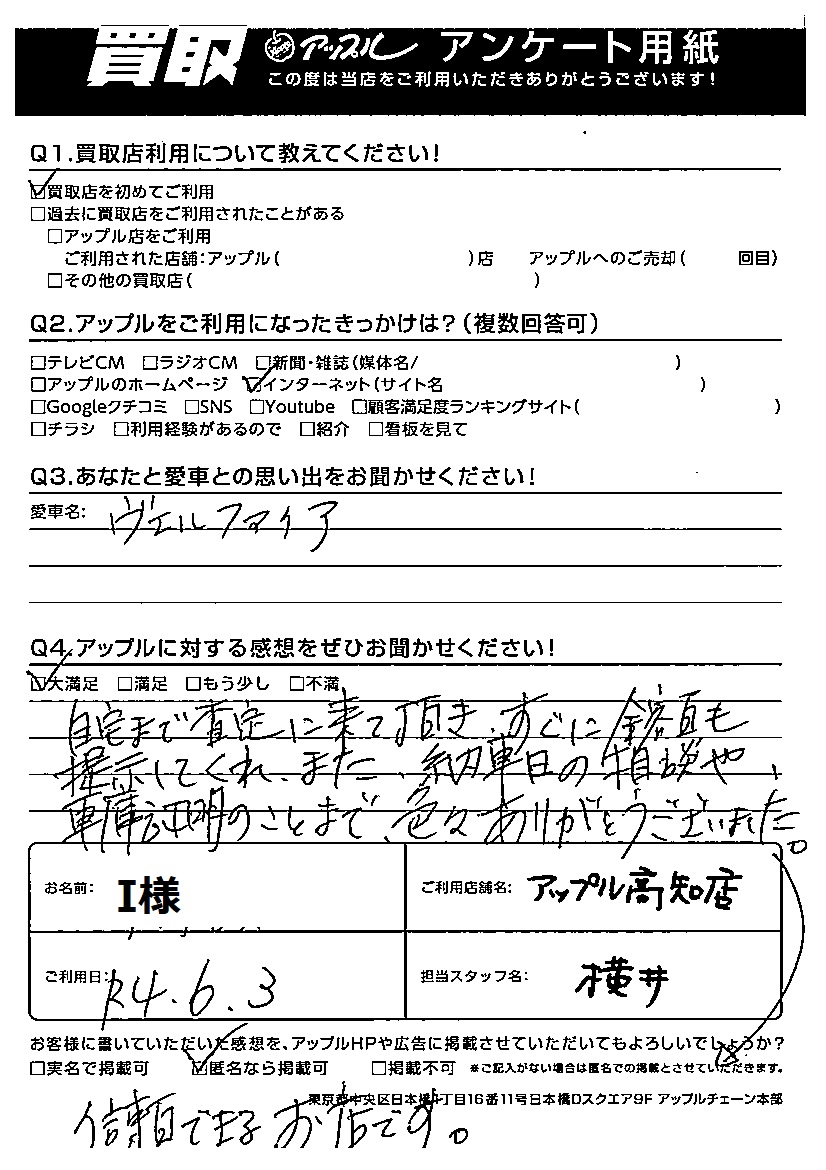 買取 アップル アンケート用紙
この度は当店をご利用いただきありがとうございます!
Q1.買取店利用について教えてください!
☑買取店を初めてご利用
□過去に買取店をご利用されたことがある
□アップル店をご利用
ご利用された店舗:アップル( )店 アップルへのご売却( 回目)
□その他の買取店( )
Q2.アップルをご利用になったきっかけは?(複数回答可)
□テレビCM □ラジオCM □新聞・雑誌(媒体名/ )
□アップルのホームページ ☑インターネット(サイト名 )
□Googleクチコミ □SNS □Youtube □顧客満足度ランキングサイト( )
□チラシ □利用経験があるので □紹介 □看板を見て
Q3.あなたと愛車との思い出をお聞かせください!
愛車名: ヴェルファイア
Q4.アップルに対する感想をぜひお聞かせください!
☑大満足 □満足 □もう少し □不満
自宅まで査定に来て頂き、すぐに金額も
提示してくれ、また、納車日の相談や、
車庫証明のことまで、色々ありがとうございました。
お名前: I様 ご利用店舗名: アップル高知店
ご利用日: R4.6.3 担当スタッフ名: 横井
お客様に書いていただいた感想を、アップルHPや広告に掲載させていただいてもよろしいでしょうか?
□実名で掲載可 ☑匿名なら掲載可 □掲載不可 ※ご記入がない場合は匿名での掲載とさせていただきます。
東京都中央区日本橋1丁目16番11号日本橋Dスクエア9F アップルチェーン本部
信頼できるお店です。